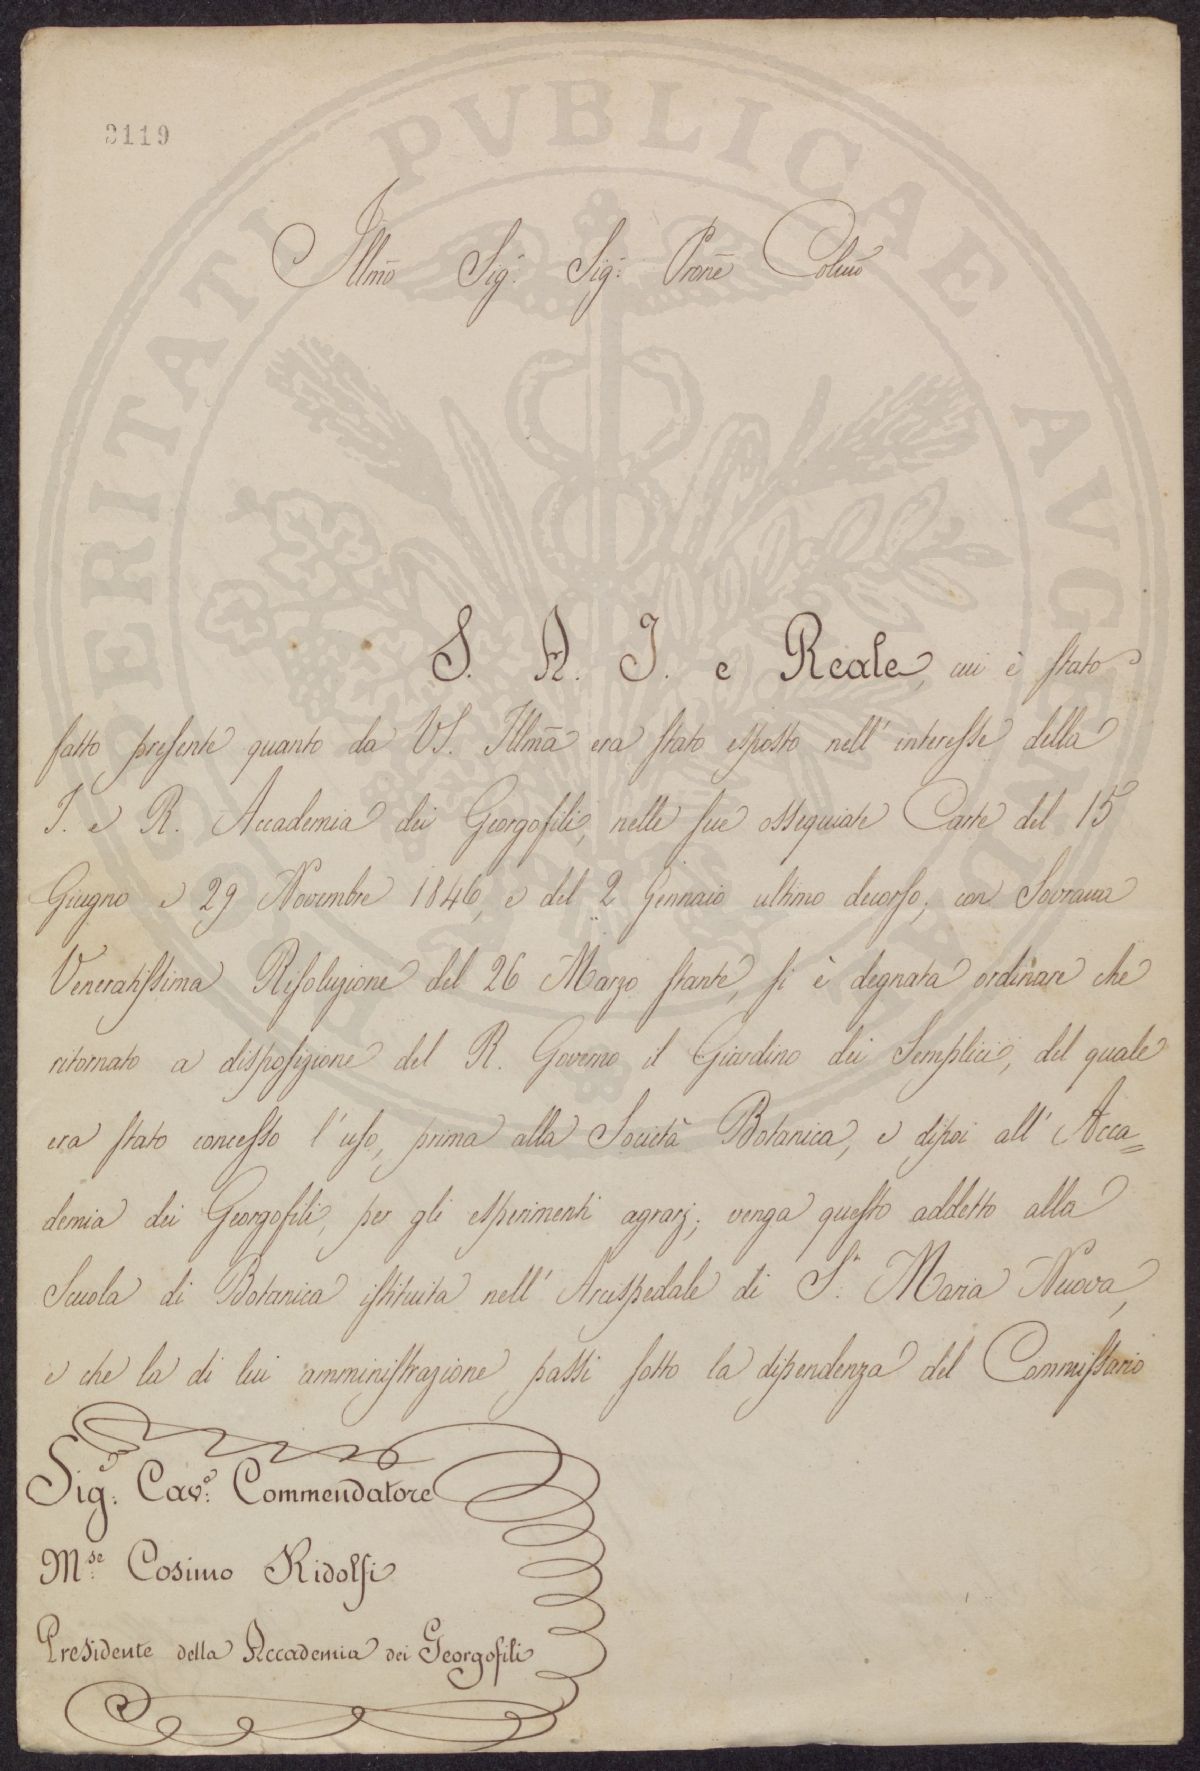 3119
Illmo Sig.r Sig.r Prone Colmo
S. A. I. e Reale, cui è stato
fatto presente quanto da VS. Illma era stato esposto nell' interesse della
I. e R. Accademia dei Georgofili, nelle sue ossequiate Carte del 15
Giugno e 29 Novembre 1846, e del 2 Gennaio ultimo decorso; con Sovrana
Veneratissima Risoluzione del 26 Marzo stante, si è degnata ordinare che
ritornato a disposizione del R. Governo il Giardino dei Semplici, del quale
era stato concesso l' uso, prima alla Società Botanica, e dipoi all' Acca=
demia dei Georgofili, per gli esperimenti agrarj; venga questo addetto alla
Scuola di Botanica istituita nell' Arcispedale di S.a Maria Nuova,
e che la di lui amministrazione passi sotto la dipendenza del Commissario
Sig.r Cav.e Commendatore
M.se Cosimo Ridolfi
Presidente della Accademia dei Georgofili
PROSPERITATI PVBLICAE AVGENDAE